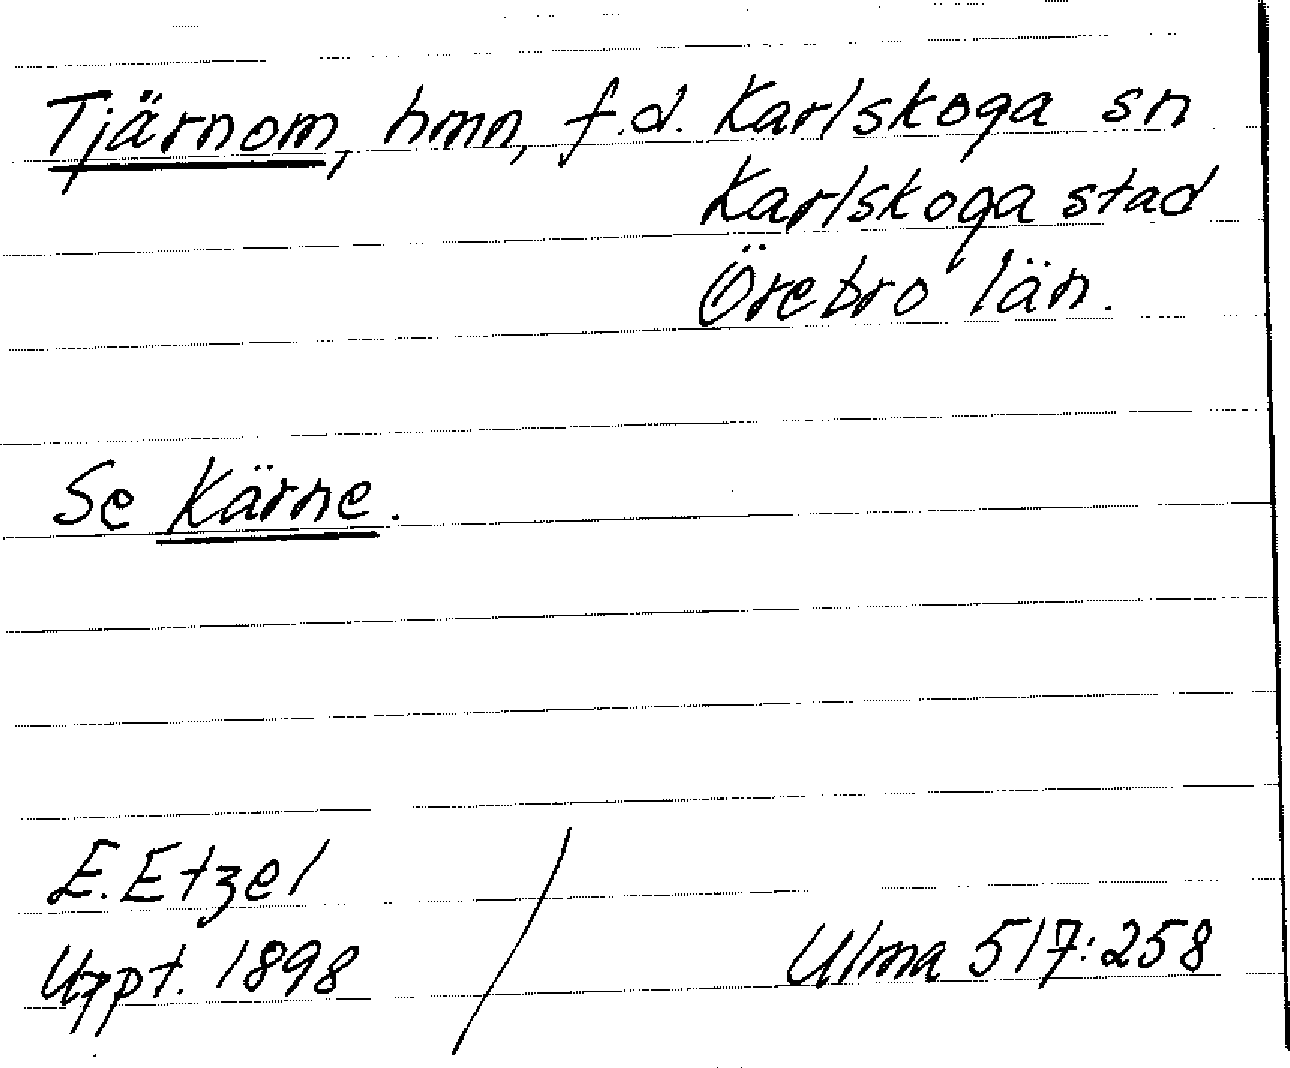 Tjärnom, hmn, f.d. Karlskoga sn
Karlskoga stad
Örebro län.
Se Kärne.
E. Etzel
Uppt. 1898 / Ulma 517:258